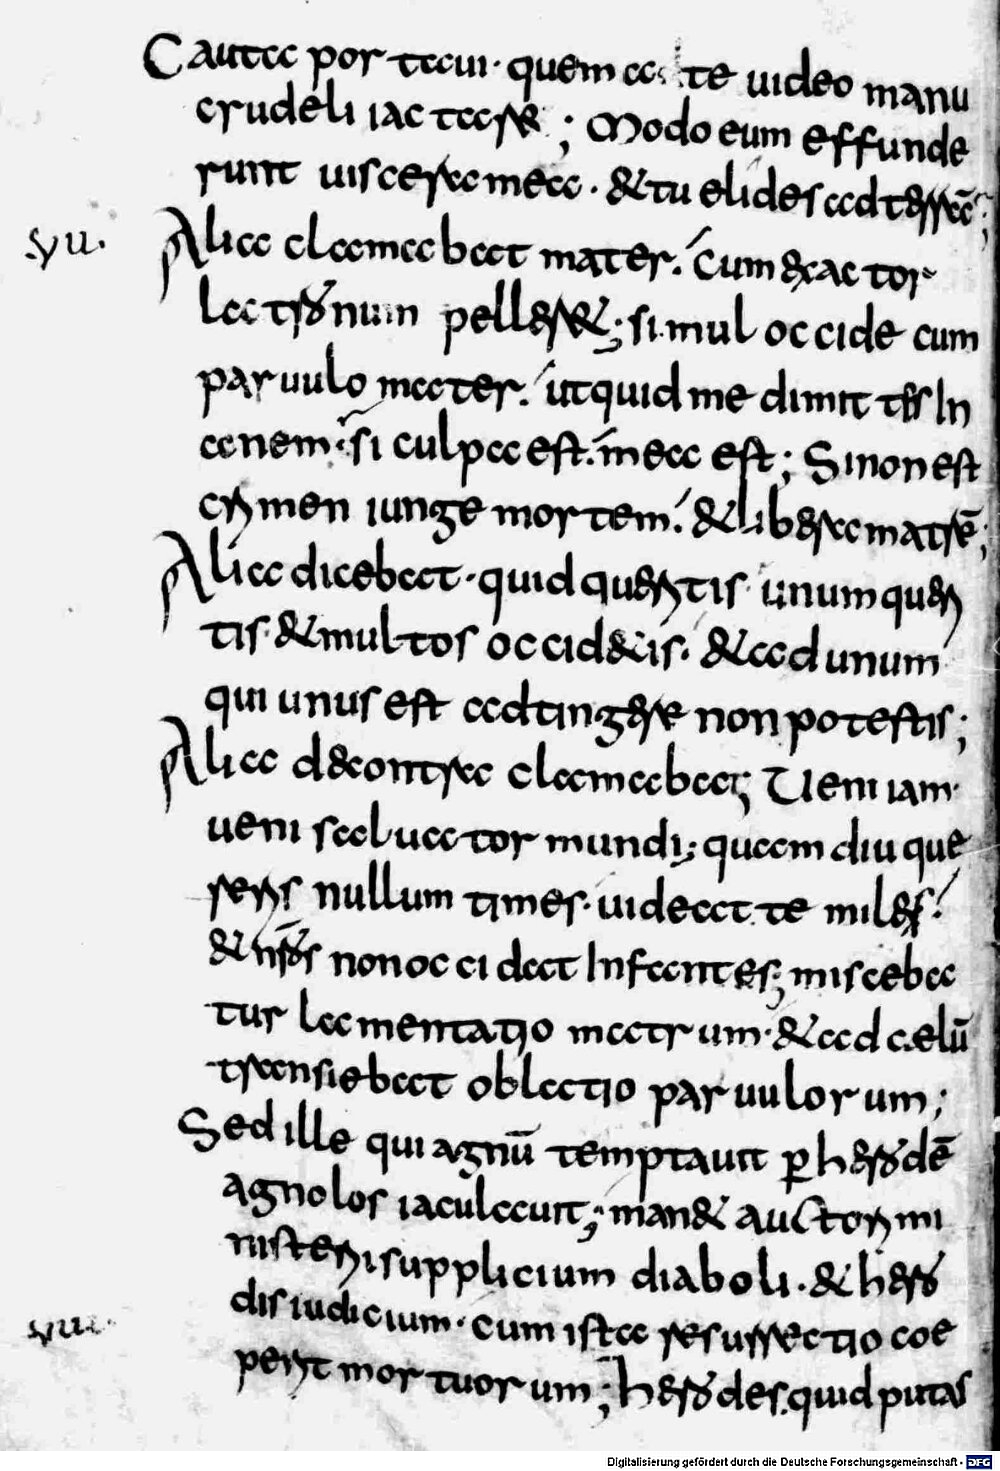 Caute portaui· quem a te uideo manu
crudeli iactare; Modo eum effunde
runt uiscera mea· & tu elides ad terrā;
xvii·
Alia clamabat mater· Cum exactor
lactis num pelleret; simul occide cum
paruulo mater· utquid me dimittis In
anem· si culpa est· mea est; Si non est
crimen iunge mortem· & libera matrē;
Alia dicebat· quid queritis unum queri
tis· & multos occidetis· & ad unum
qui unus est adtingere non potestis;
Alia de contra clamabat; Ueni iam·
ueni saluator mundi; quam diu que
reris nullum times· uideat te miles·
& nr̄os non occidat Infantes; misceba
tur lamentatio matrum· & ad celū
transiebat oblatio paruulorum;
Sed ille qui agnū temptauit per herodē
agnolos iaculauit; manet auctori mi
nisterii supplicium diaboli· & hero
dis iudicium· cum ista resurrectio coe
xviii·
perit mortuorum; herodes· quid putas
Digitalisierung gefördert durch die Deutsche Forschungsgemeinschaft - DFG